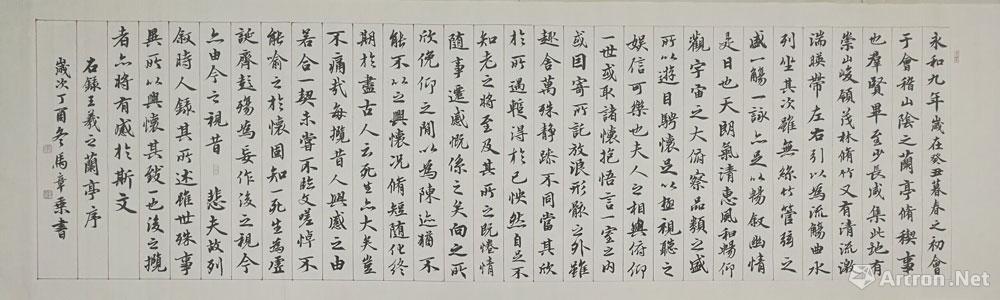 永和九年歲在癸丑暮春之初會
于會稽山陰之蘭亭脩禊事
也群賢畢至少長咸集此地有
崇山峻領茂林脩竹又有清流激
湍暎帶左右引以為流觴曲水
列坐其次雖無絲竹管弦之
盛一觴一詠亦足以暢敘幽情
是日也天朗氣清惠風和暢仰
觀宇宙之大俯察品類之盛
所以遊目騁懷足以極視聽之
娛信可樂也夫人之相與俯仰
一世或取諸懷抱悟言一室之內
或因寄所託放浪形骸之外雖
趣舍萬殊靜躁不同當其欣
於所遇蹔得於己怏然自足不
知老之將至及其所之既惓情
隨事遷感慨係之矣向之所
欣俛仰之間以為陳迹猶不
能不以之興懷況脩短隨化終
期於盡古人云死生亦大矣豈
不痛哉每攬昔人興感之由
若合一契未嘗不臨文嗟悼不
能喻之於懷固知一死生為虛
誕齊彭殤為妄作後之視今
亦由今之視昔 悲夫故列
敘時人錄其所述雖世殊事
異所以興懷其致一也後之攬
者亦將有感於斯文
右錄王羲之蘭亭序
歲次丁酉冬馬章乘書
Artron.Net